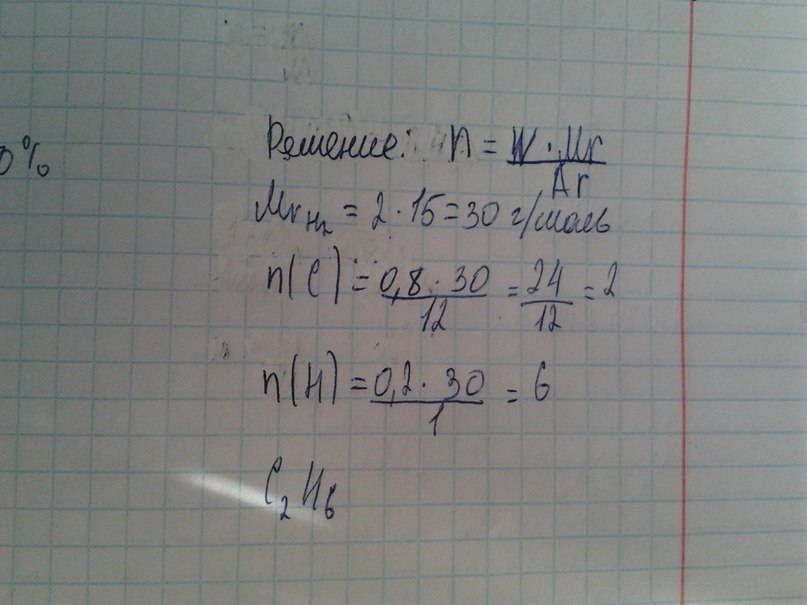 0%
Решение: n = W · Mr / Ar
Mr H₂ = 2 · 15 = 30 г/моль
n(C) = 0,8 · 30 / 12 = 24 / 12 = 2
n(H) = 0,2 · 30 / 1 = 6
C₂H₆